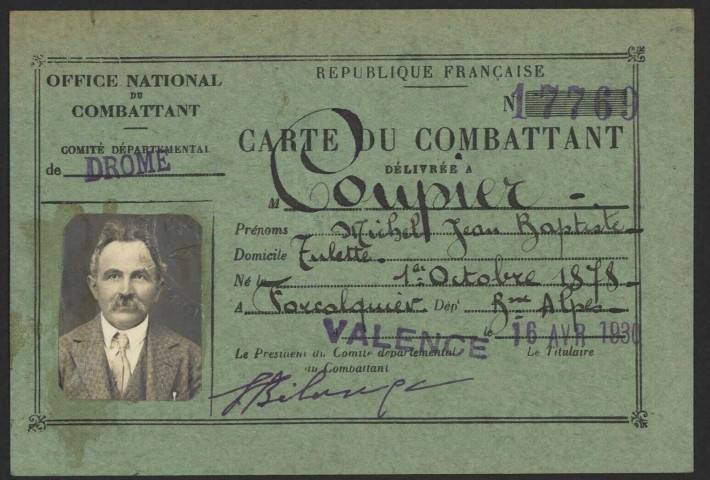 OFFICE NATIONAL
DU
COMBATTANT
COMITÉ DÉPARTEMENTAL
de DROME
REPUBLIQUE FRANÇAISE
N° 17769
CARTE DU COMBATTANT
DÉLIVRÉE A
M Coupier
Prénoms Michel Jean Baptiste
Domicile Tulette
Né le 1er Octobre 1878
A Forcalquier Dépt Bses Alpes
VALENCE le 16 AVR 1930
Le President du Comité départemental
du Combattant
Le Titulaire